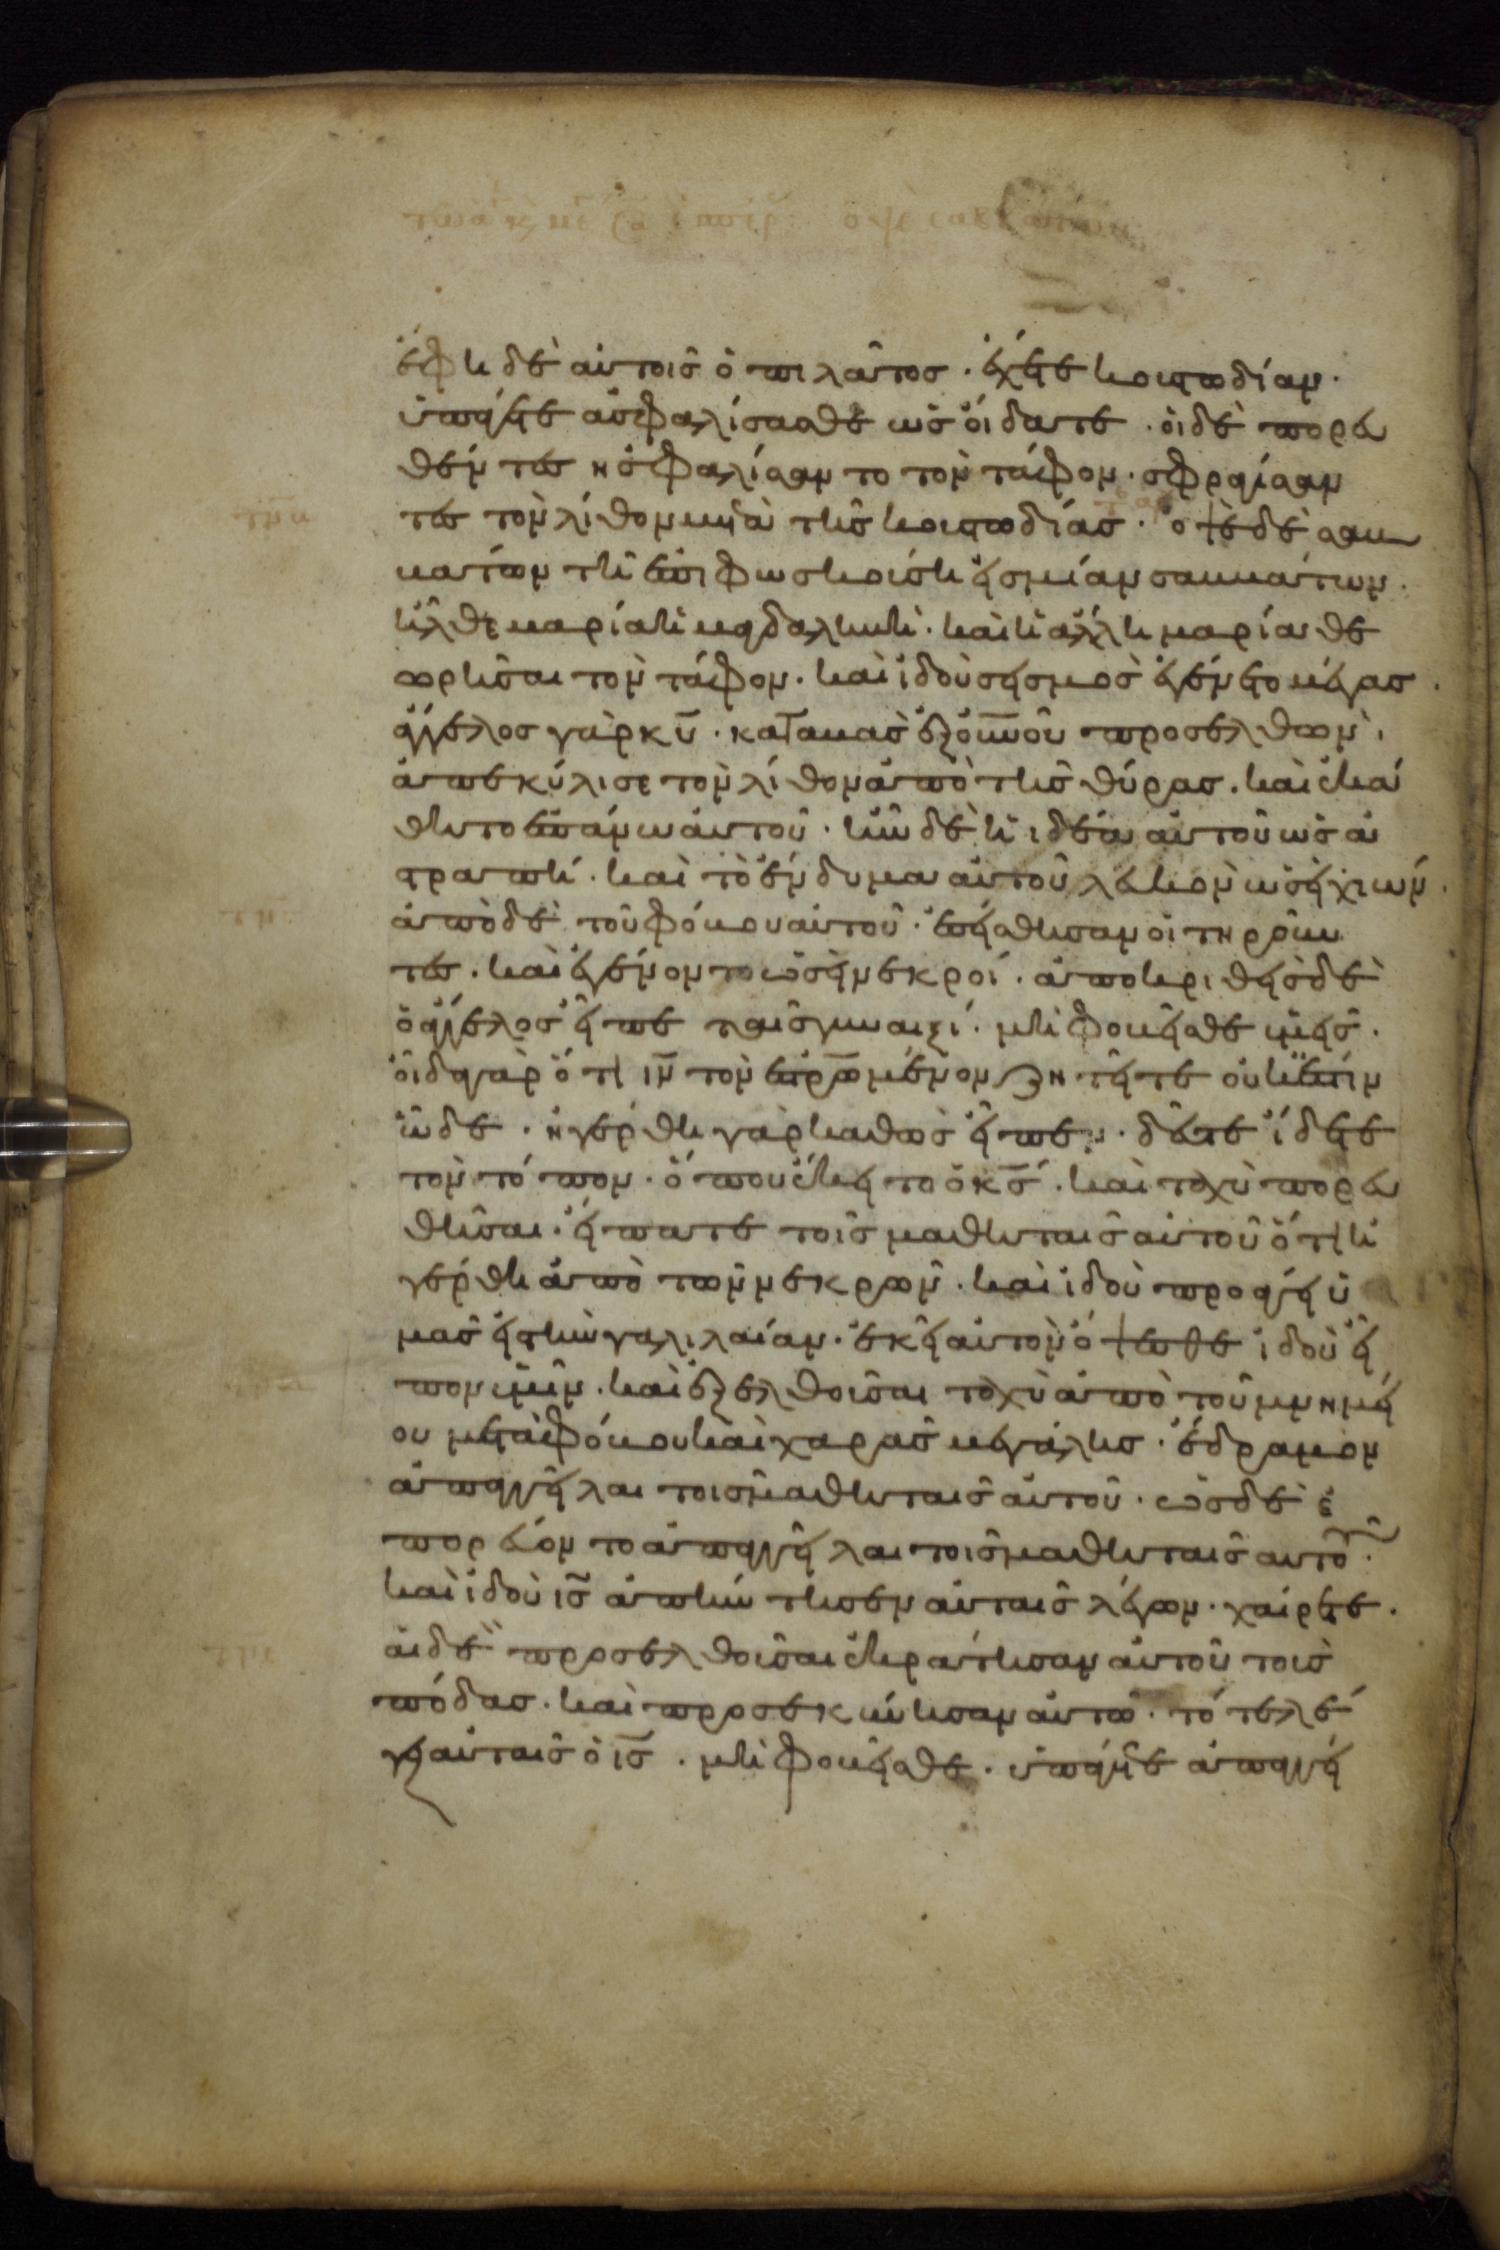 ἔφη δὲ αὐτοῖς ὁ πιλάτος· ἔχετε κουστωδίαν·
ὑπάγετε ἀσφαλίσασθε ὡς οἴδατε· οἱ δὲ πορευ
θέντες ἠσφαλίσαντο τὸν τάφον· σφραγίσαν
τες τὸν λίθον μετὰ τῆς κουστωδίας· ὀψὲ δὲ σαβ
βάτων τῇ ἐπιφωσκούσῃ εἰς μίαν σαββάτων·
ἦλθε μαρία ἡ μαγδαληνὴ· καὶ ἡ ἄλλη μαρία θε
ωρῆσαι τὸν τάφον· καὶ ἰδοὺ σεισμὸς ἐγένετο μέγας·
ἄγγελος γὰρ κ̅υ̅· καταβὰς ἐξ ο̅υ̅νοῦ προσελθὼν
ἀπεκύλισε τὸν λίθον ἀπὸ τῆς θύρας· καὶ ἐκά
θητο ἐπάνω αὐτοῦ· ἦν δὲ ἡ ἰδέα αὐτοῦ ὡς ἀ
στραπή· καὶ τὸ ἔνδυμα αὐτοῦ λευκὸν ὡσεὶ χιών·
ἀπὸ δὲ τοῦ φόβου αὐτοῦ· ἐσείσθησαν οἱ τηροῦν
τες· καὶ ἐγένοντο ὡσεὶ νεκροί· ἀποκριθεὶς δὲ
ὁ ἄγγελος εἶπε ταῖς γυναιξί· μὴ φοβεῖσθε ὑμεῖς·
οἶδα γὰρ ὅτι ι̅ν̅ τὸν ἐσ̅τ̅ρωμένον ζητεῖτε οὐκ ἔστιν
ὧδε· ἠγέρθη γὰρ καθὼς εἶπεν· δεῦτε ἴδετε
τὸν τόπον· ὅπου ἔκειτο ὁ κ̅ς̅· καὶ ταχὺ πορευ
θεῖσαι· εἴπατε τοῖς μαθηταῖς αὐτοῦ ὅτι ἠ
γέρθη ἀπὸ τῶν νεκρῶν· καὶ ἰδοὺ προάγει ὑ
μᾶς εἰς τὴν γαλιλαίαν· ἐκεῖ αὐτὸν ὄψεσθε ἰδοὺ εἶ
πον ὑμῖν· καὶ ἐξελθοῦσαι ταχὺ ἀπὸ τοῦ μνημεί
ου μετὰ φόβου καὶ χαρᾶς μεγάλης· ἔδραμον
ἀπαγγεῖλαι τοῖς μαθηταῖς αὐτοῦ· ὡς δὲ ἐ
πορεύοντο ἀπαγγεῖλαι τοῖς μαθηταῖς αὐτοῦ·
καὶ ἰδοὺ ι̅ς̅ ἀπήντησεν αὐταῖς λέγων· χαίρετε·
αἱ δὲ προσελθοῦσαι ἐκράτησαν αὐτοῦ τοὺς
πόδας· καὶ προσεκύνησαν αὐτῷ· τότε λέ
γει αὐταῖς ὁ ι̅ς̅· μὴ φοβεῖσθε· ὑπάγετε ἀπαγγεί